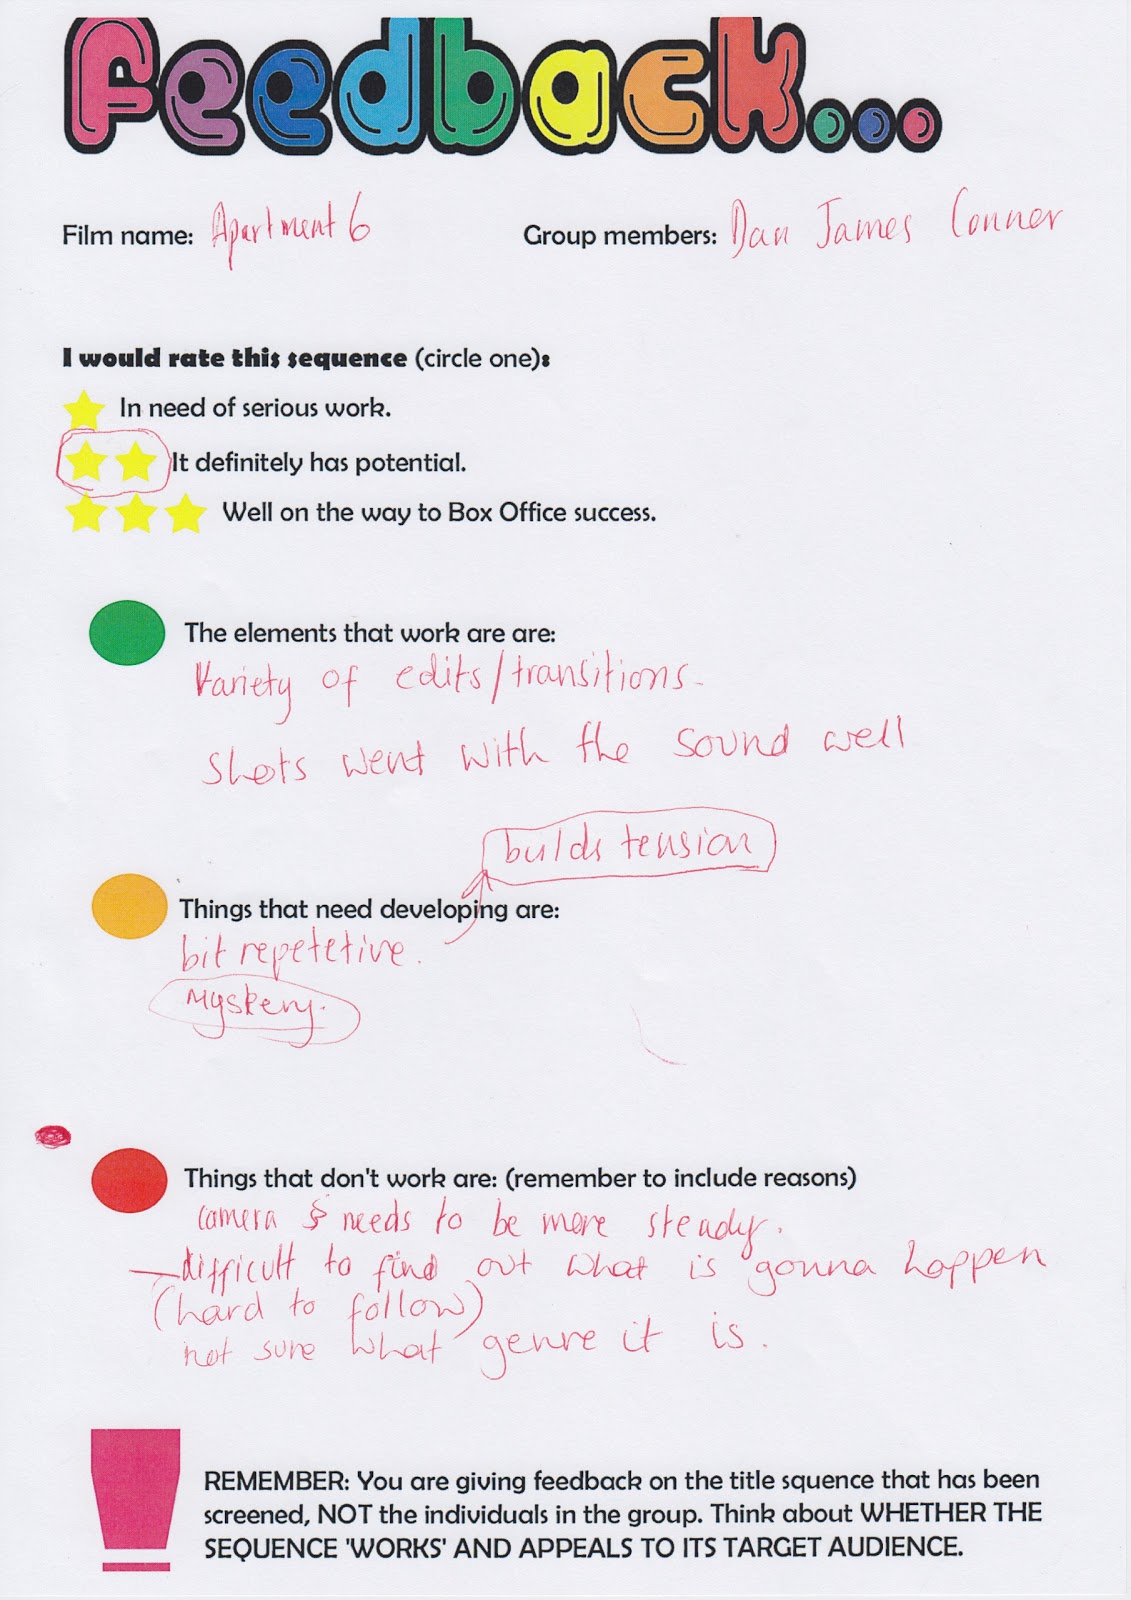 Feedback...
Film name: Apartment 6 Group members: Dan James Conner
I would rate this sequence (circle one):
In need of serious work.
It definitely has potential.
Well on the way to Box Office success.
The elements that work are are:
Variety of edits/transitions.
Shots went with the sound well
builds tension
Things that need developing are:
bit repetetive.
Mystery.
Things that don't work are: (remember to include reasons)
camera needs to be more steady.
—difficult to find out what is gonna happen
(hard to follow)
not sure what genre it is.
REMEMBER: You are giving feedback on the title squence that has been
screened, NOT the individuals in the group. Think about WHETHER THE
SEQUENCE 'WORKS' AND APPEALS TO ITS TARGET AUDIENCE.